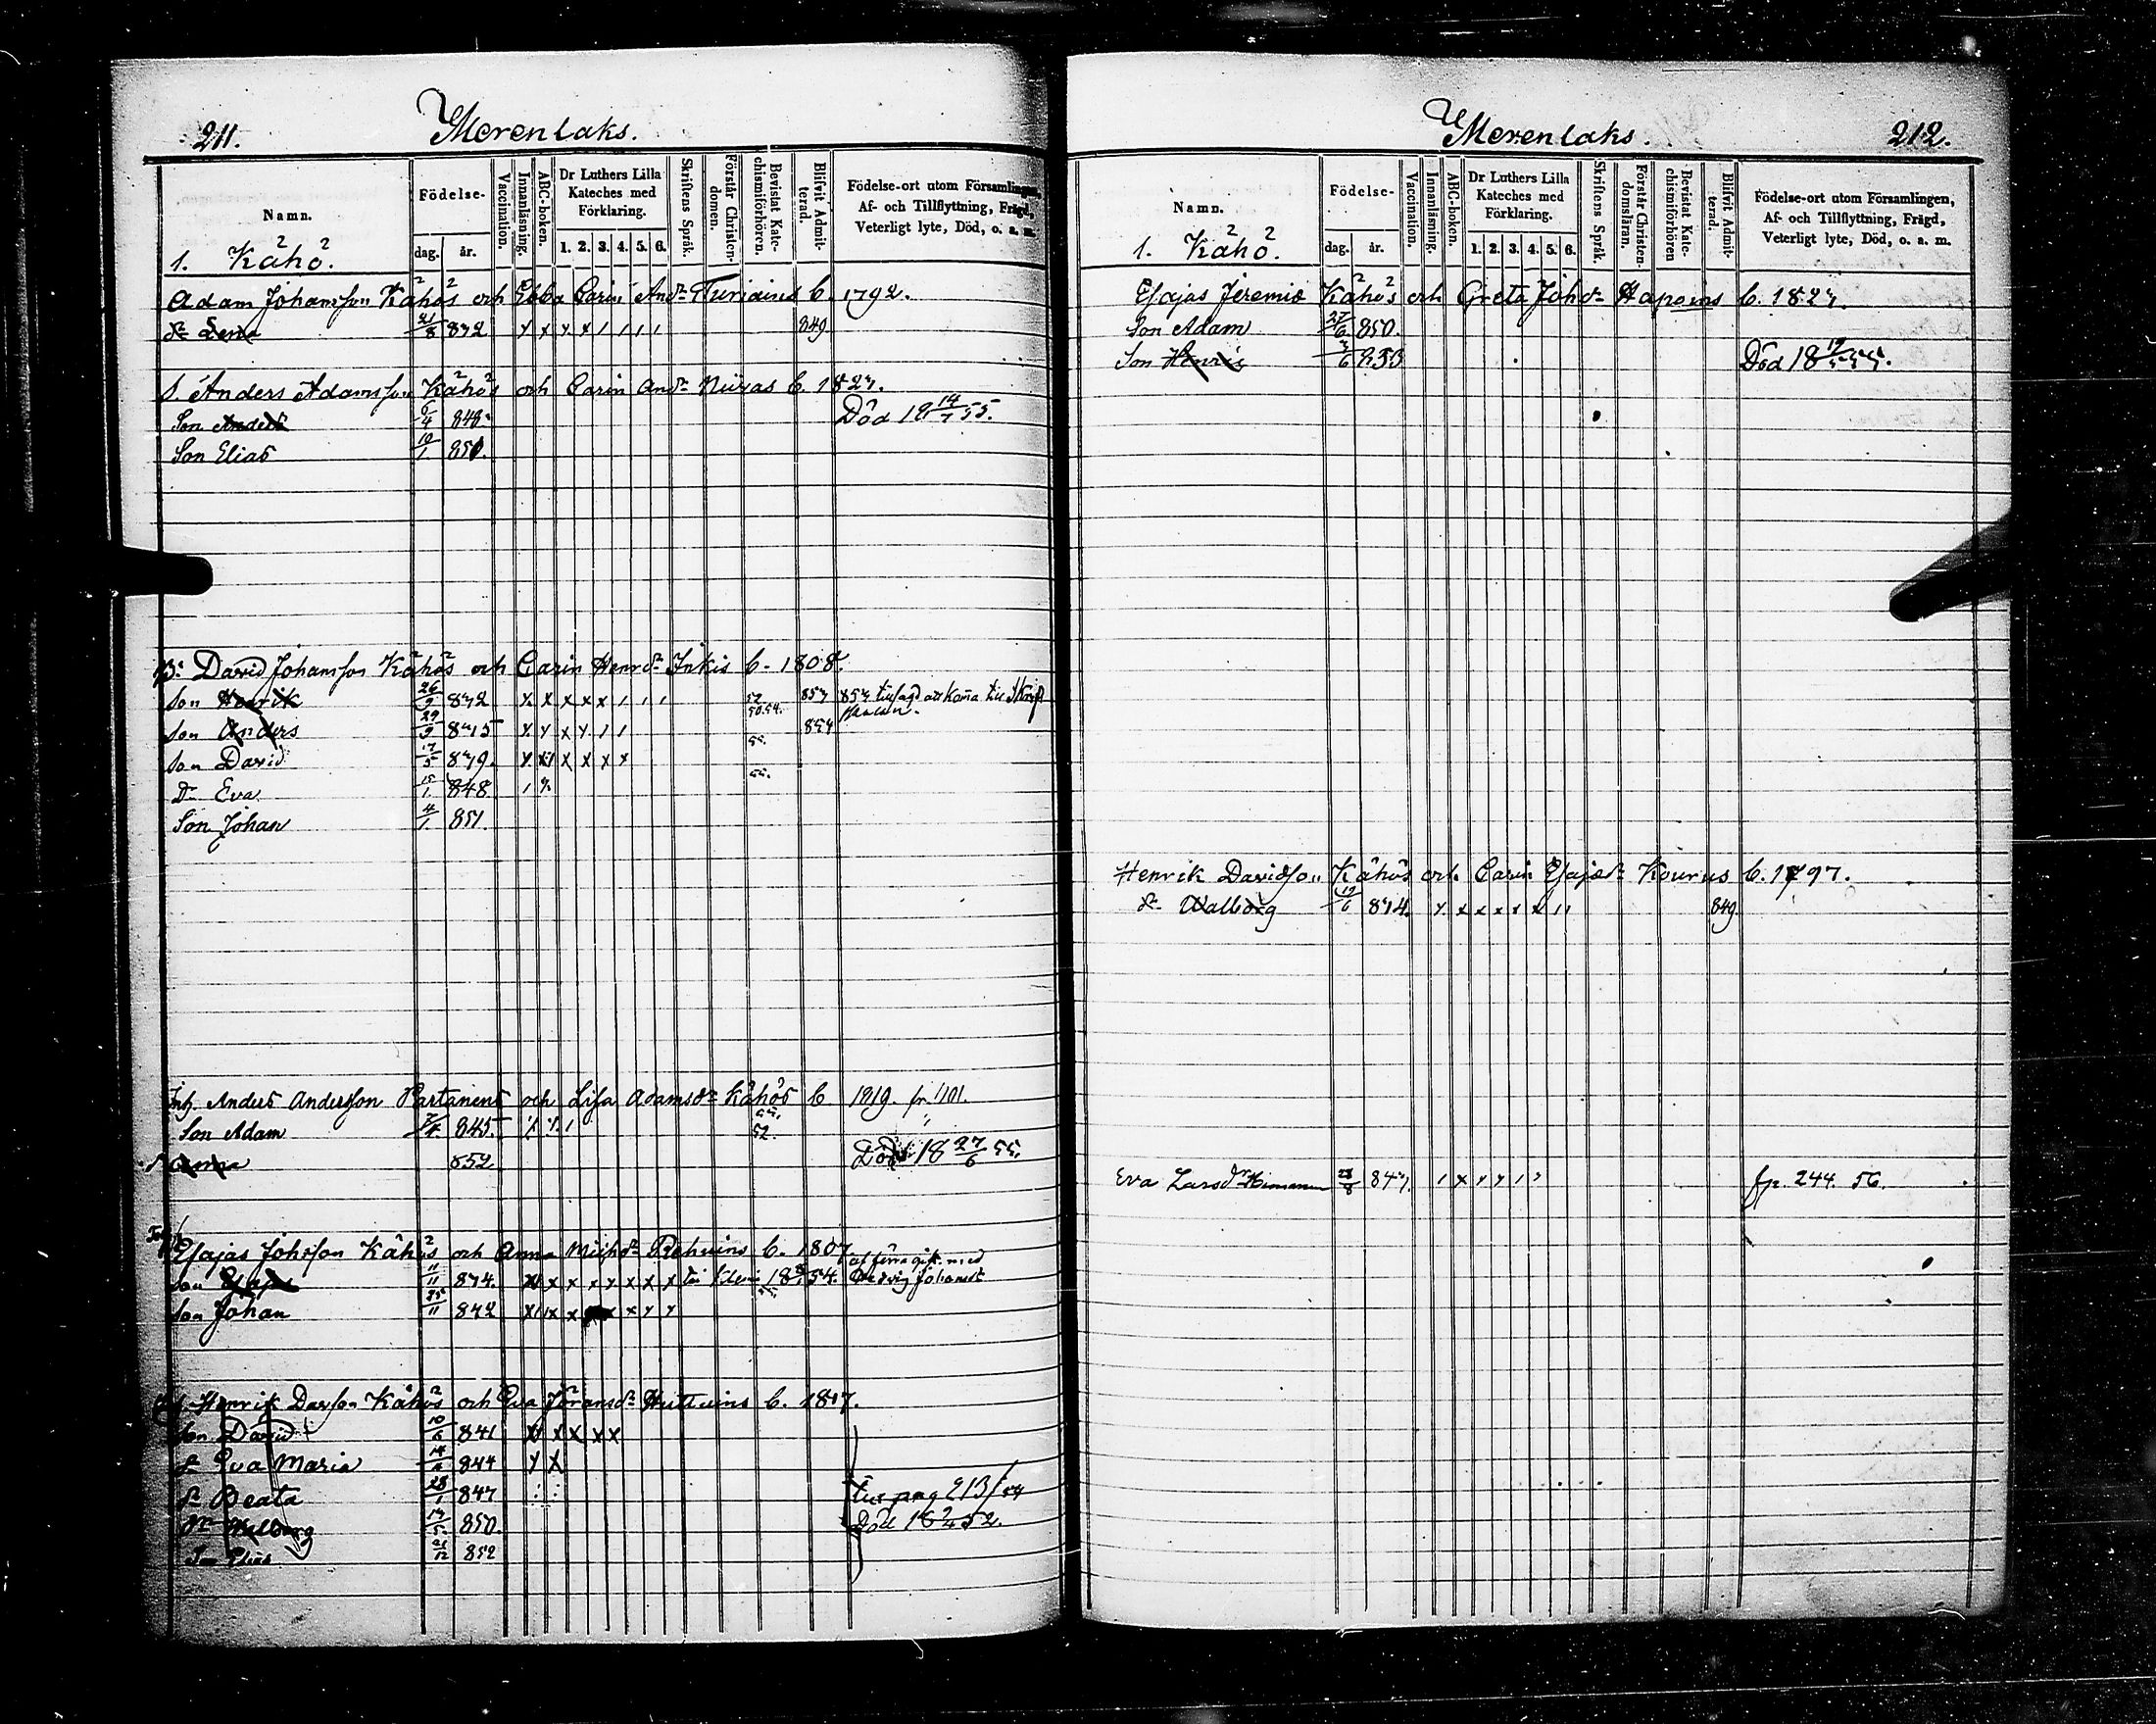 211.
Merenlaks.
Namn.
Födelse-
dag.
år.
Vaccination.
Innanläsning.
ABC-boken.
Dr Luthers Lilla Kateches med Förklaring.
1. 2. 3. 4. 5. 6.
Skriftens Språk.
Förstår Christendomen.
Bevistat Katechismiförhören.
Blifvit Admitterad.
Födelse-ort utom Församlingen,
Af- och Tillflyttning, Frägd,
Veterligt lyte, Död, o. a. m.
1. Kähö.
Adam Johansson Kähös och Ebba Carin And:dr Turiains b. 1792.
dr Lena 21/8 832 849
S. Anders Adamsson Kähös och Carin And:dr b. 1827.
Son Anders 5/4 848 Död 18 14/7 55.
Son Elias 10/1 850.
Br: David Johansson Kähös och Carin Henr:dr Inkis b. 1808.
Son Henrik 26/9 832 52 853
Son Anders 29/9 835 50.54. 854
Son David 17/5 839. 55.
Dr Eva 15/1 848 55.
Son Johan 4/1 851.
Inh. Anders Andersson Partanens och Lisa Adamsdr Kähös b. 1819. fr. 1101.
Son Adam 7/4 845 52
dr Anna 852 Död 18 27/6 55.
Esajas Johsson Kähös och Anna Mich:dr b. 1807
Son Esajas 11/11 834.
Son Johan 25/11 842
Henrik Davson Kähös och Eva Göransdr Huttuins b. 1817.
Son David 10/6 841
dr Eva Maria 14/4 844
dr Beata 28/1 847 till pag 213/54
dr Walborg 14/5 850. Död 18 2/4 52.
Son Elias 21/12 852
Merenlaks.
212.
Namn.
Födelse-
dag.
år.
Vaccination.
Innanläsning.
ABC-boken.
Dr Luthers Lilla Kateches med Förklaring.
1. 2. 3. 4. 5. 6.
Skriftens Språk.
Förstår Christendomsläran.
Bevistat Katechismiförhören
Blifvit Admitterad.
Födelse-ort utom Församlingen,
Af- och Tillflyttning, Frägd,
Veterligt lyte, Död, o. a. m.
1. Kähö.
Esajas Jeremie Kähös och Greta Joh:dr Hapoins b. 1827.
Son Adam 27/6 850.
Son Henric 3/6 853 Död 18
Henrik Davidsson Kähös och Carin Esajædr Kourus b. 1797.
dr Walborg 19/6 834. 849.
Eva Larsdr Himanen 28/8 847. fr. 244. 56.